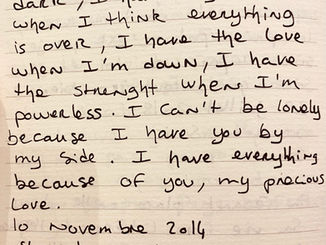 dark, I
when I think everything
is over, I have the love
when I'm down, I have
the strenght when I'm
powerless. I can't be lonely
because I have you by
my side. I have everything
because of you, my precious
love.
10 Novembre 2014